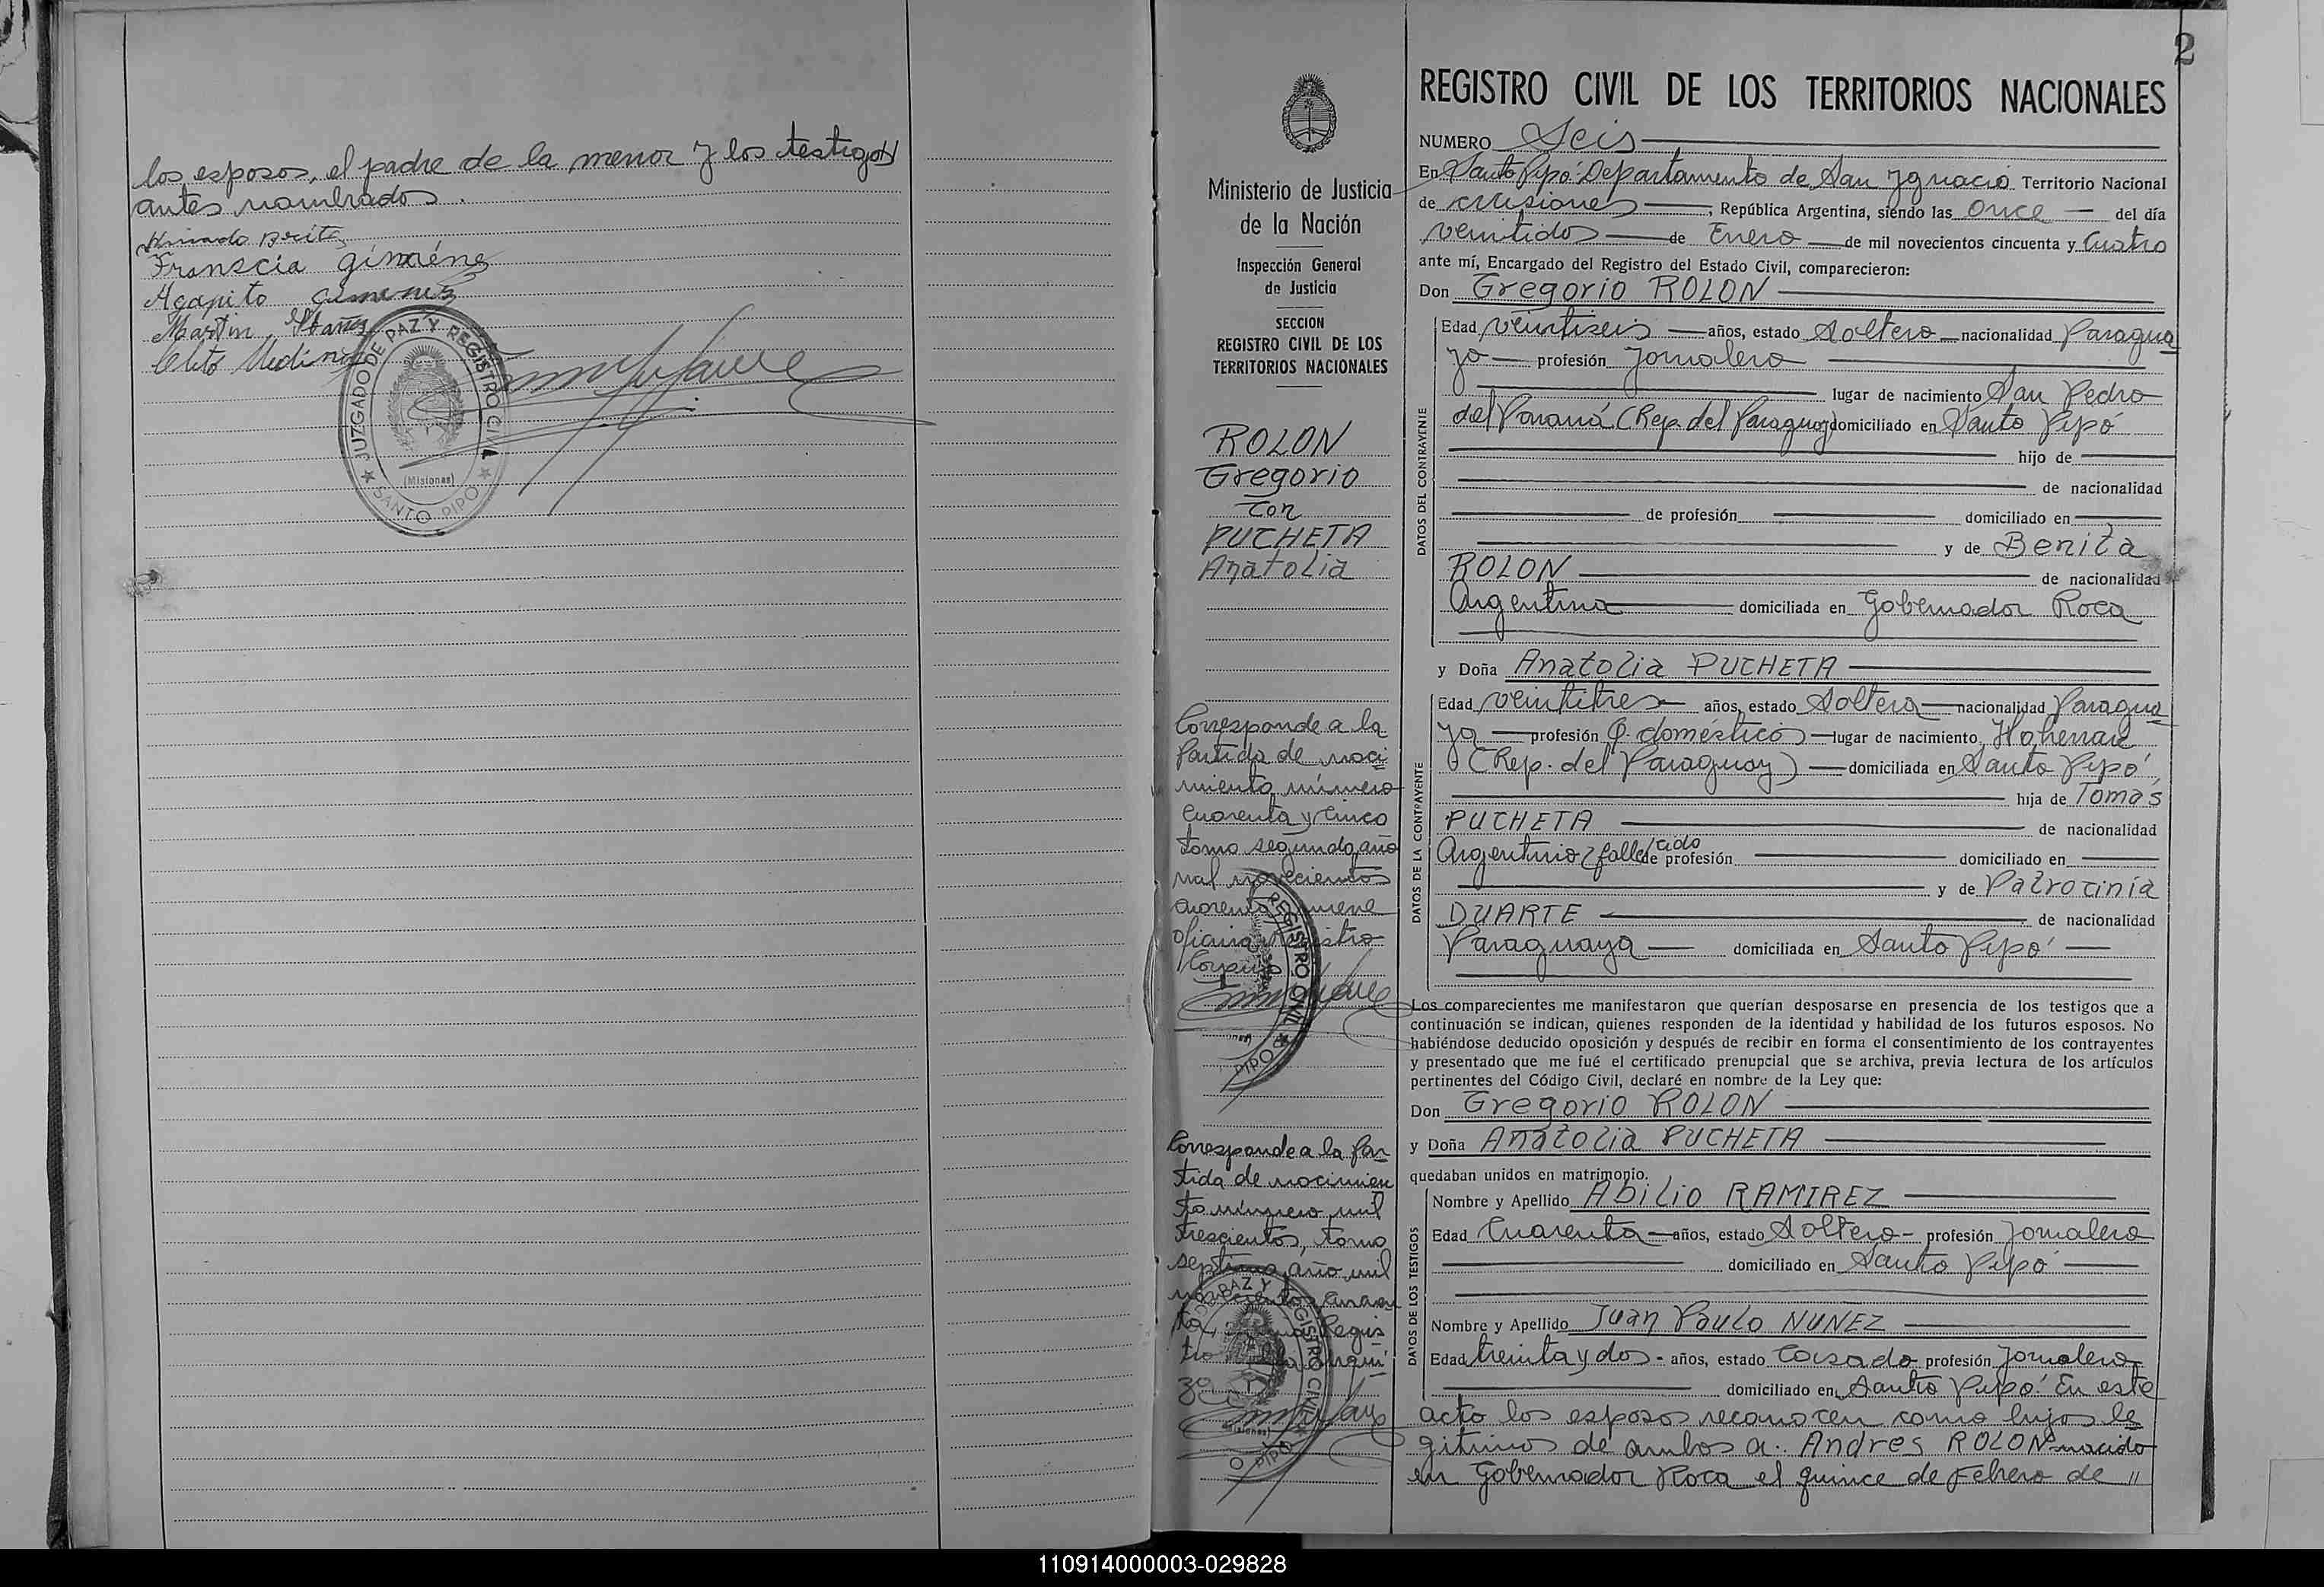 los esposos, el padre de la menor y los testigos
antes nombrados.
Brite
Franscia giméne
Agapito Gimenez
Martin Ibañez
Medina
JUZGADO DE PAZ Y REGISTRO CIVIL
(Misiones)
SANTO PIPO
Ministerio de Justicia
de la Nación
Inspección General
de Justicia
SECCION
REGISTRO CIVIL DE LOS
TERRITORIOS NACIONALES
ROLON
Gregorio
con
PUCHETA
Anatolia
Corresponde a la
Partida de naci
miento número
cuarenta y cinco
tomo segundo año
mil novecientos
cuarenta y nueve
oficina Registro
REGISTRO CIVIL
PIPO
Corresponde a la Par
tida de nacimien
to número mil
trescientos, tomo
septimo año mil
PAZ Y REGISTRO CIVIL
PIPO
2
REGISTRO CIVIL DE LOS TERRITORIOS NACIONALES
NUMERO Seis
En Santo Pipó Departamento de San Ygnacio Territorio Nacional
de Misiones, República Argentina, siendo las Once del día
veintidos de Enero de mil novecientos cincuenta y Cuatro
ante mí, Encargado del Registro del Estado Civil, comparecieron:
Don Gregorio ROLON
DATOS DEL CONTRAYENTE
Edad veintiseis años, estado Soltero nacionalidad Paragua
yo profesión Jornalero
lugar de nacimiento San Pedro
del Paraná (Rep. del Paraguay) domiciliado en Santo Pipó
hijo de
de nacionalidad
de profesión domiciliado en
y de Benita
ROLON de nacionalidad
Argentina domiciliada en Gobernador Roca
y Doña Anatolia PUCHETA
DATOS DE LA CONTRAYENTE
Edad veintitres años, estado Soltera nacionalidad Paragua
ya profesión Q. domésticos lugar de nacimiento Hohenau
(Rep. del Paraguay) domiciliada en Santo Pipó
hija de Tomás
PUCHETA de nacionalidad
Argentino, fallecido de profesión domiciliado en
y de Patrocinia
DUARTE de nacionalidad
Paraguaya domiciliada en Santo Pipó
Los comparecientes me manifestaron que querían desposarse en presencia de los testigos que a
continuación se indican, quienes responden de la identidad y habilidad de los futuros esposos. No
habiéndose deducido oposición y después de recibir en forma el consentimiento de los contrayentes
y presentado que me fué el certificado prenupcial que se archiva, previa lectura de los artículos
pertinentes del Código Civil, declaré en nombre de la Ley que:
Don Gregorio ROLON
y Doña Anatolia PUCHETA
quedaban unidos en matrimonio.
DATOS DE LOS TESTIGOS
Nombre y Apellido Abilio RAMIREZ
Edad Cuarenta años, estado Soltero profesión Jornalero
domiciliado en Santo Pipó
Nombre y Apellido Juan Paulo NUNEZ
Edad treinta y dos años, estado Casado profesión Jornalero
domiciliado en Santo Pipó. En este
acto los esposos reconocen como hijos le
gitimos de ambos a: Andres ROLON nacido
en Gobernador Roca el quince de Febrero de "
110914000003-029828